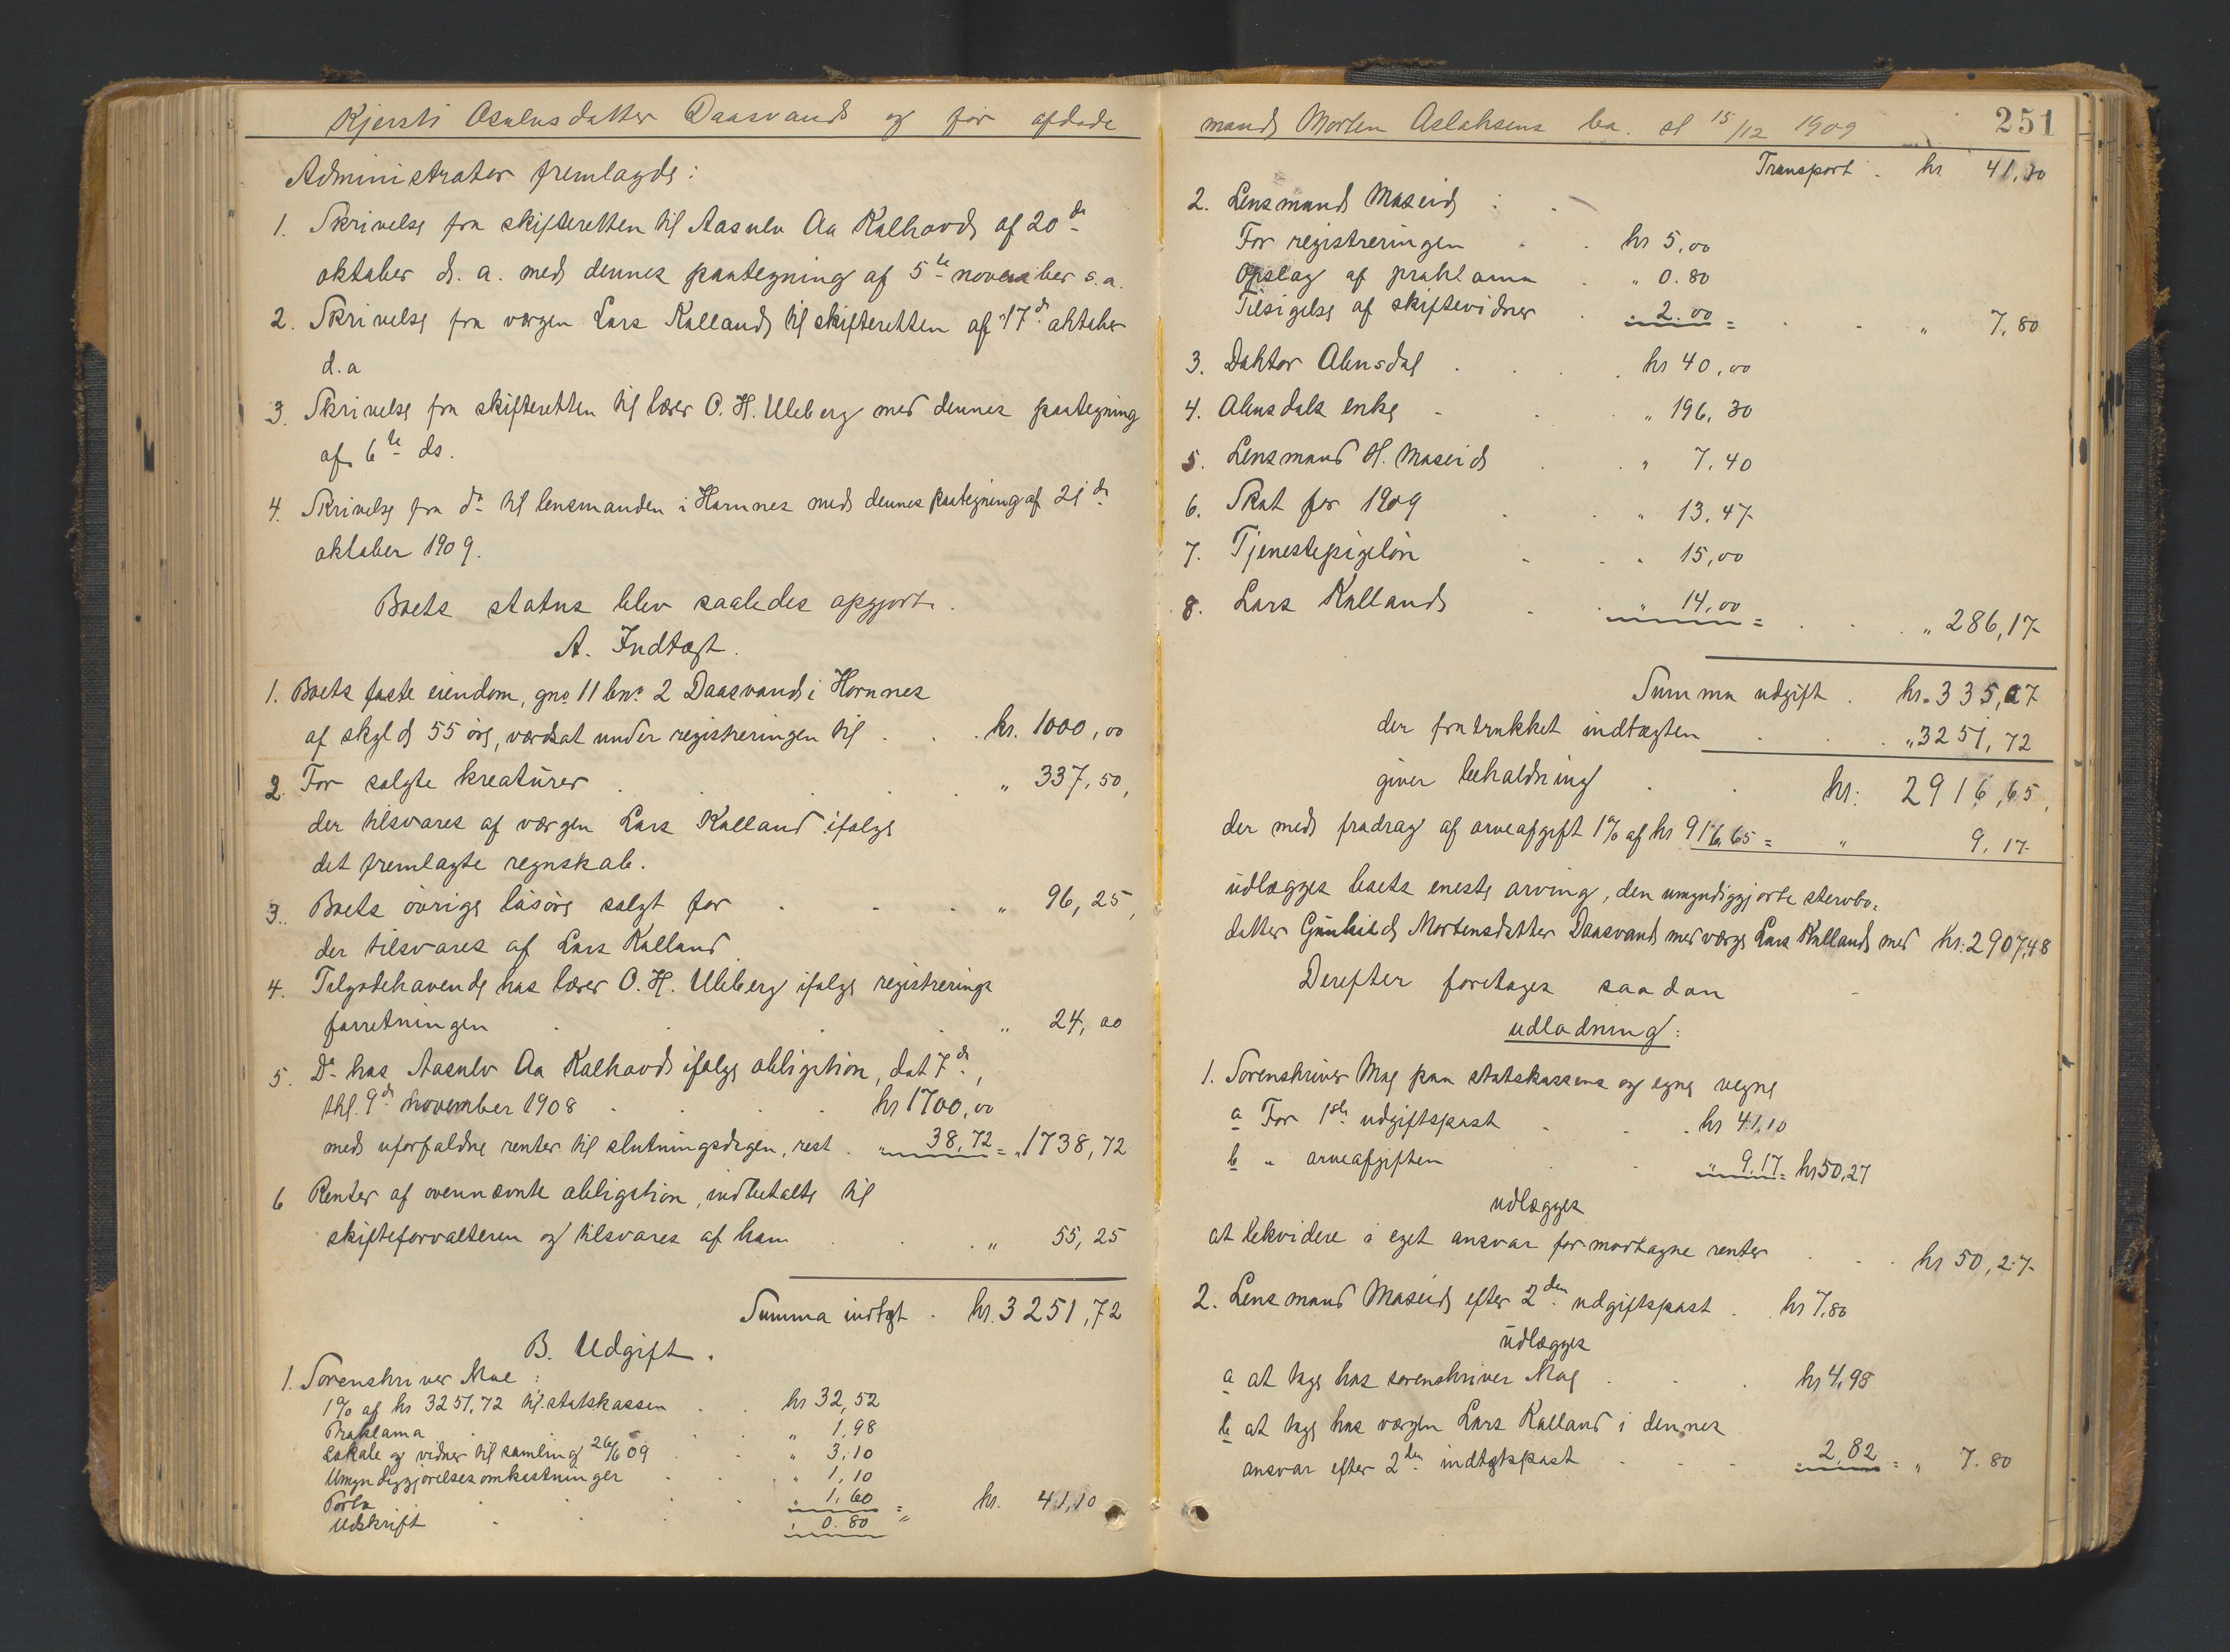 Kjersti Osulvsdatter Daasvand og før afdøde
Administrator fremlagde:
1. Skrivelse fra skifteretten til Aasulv Aa Kalhovd af 20de
oktober d. a. med dennes paategning af 5te november s. a.
2. Skrivelse fra værgen Lars Kalland til skifteretten af 17de oktober
d. a
3. Skrivelse fra skifteretten til lærer O. H. Uleberg med dennes paategning
af 6te ds.
4. Skrivelse fra do til lensmanden i Hornnes med dennes paategning af 21de
oktober 1909.
Boets status blev saaledes opgjort.
A. Indtægt.
1. Boets faste eiendom, gno 11 bno 2 Daasvand i Hornnes
af skyld 55 øre, værdsat under registreringen til . . . kr. 1000,00
2. For solgte kreaturer . . . . " 337,50,
der tilsvares af værgen Lars Kalland ifølge
det fremlagte regnskab.
3. Boets øvrige løsøre solgt for . . . " 96,25,
der tilsvares af Lars Kalland
4. Tilgodehavende hos lærer O. H. Uleberg ifølge registrerings
forretningen . . . . " 24,00
5. Do hos Aasulv Aa Kalhovd ifølge obligation, dat 7de,
thl. 9de november 1908 . . . . kr 1700,00
med uforfaldne renter til slutningsdagen, rest . " 38,72 = " 1738,72
6 Renter af ovennævnte obligation, indbetalte til
skifteforvalteren og tilsvares af ham . . . " 55,25
Summa indtgt . kr. 3251,72
B. Udgift.
1. Sorenskriver Moe :
1% af kr 3251,72 til statskassen . . kr 32,52
Proklama . . . " 1,98
Lokale og vidner til samling 26/6 09 . . " 3,10
Umyndiggjørelsesomkostninger . . . " 1,10
Porto . . . " 1,60 = kr. 41,10
Udskrift . . . " 0.80 "
mand Morten Aslaksens bo. sl 15/12 1909
251
Transport . kr 41,10
2. Lensmand Maseid :
For registreringen . . kr 5,00
Opslag af proklama . " 0.80
Tilsigelse af skiftevidner . " 2.00 = . . " 7,80
3. Doktor Alnsdal . . . . kr 40,00
4. Alnsdals enke . . " 196,30
5. Lensmand H. Maseid . . " 7,40
6. Skat for 1909 . . " 13,47
7. Tjenestepigeløn . . " 15,00
8. Lars Kalland . . " 14,00 = . . . " 286,17
Summa udgift . kr. 335,07
der fratrukket indtægten . . . " 3251,72
giver beholdning . . kr: 2916,65,
der med fradrag af arveafgift 1% af kr 916,65 = " 9,17
udlægges boets eneste arving, den umyndiggjorte stervbo=
datter Gunhild Mortensdatter Daasvand med værge Lars Kalland med kr: 2907,48
Derefter foretages saadan
udlodning:
1. Sorenskriver Moe paa statskassens og egne vegne
a For 1ste udgiftspost . . . kr 41,10
b " arveafgiften . . " 9.17 = kr 50,27
udlægges
at likvidere i eget ansvar for modtagne renter . . . kr 50,27
2. Lensmand Maseid efter 2den udgiftspost . . kr 7,80
udlægges
a at tage hos sorenskriver Moe . . . kr 4,98
b at tage hos værgen Lars Kalland i dennes
ansvar efter 2den indtgtspost . . . " 2,82 = " 7.80